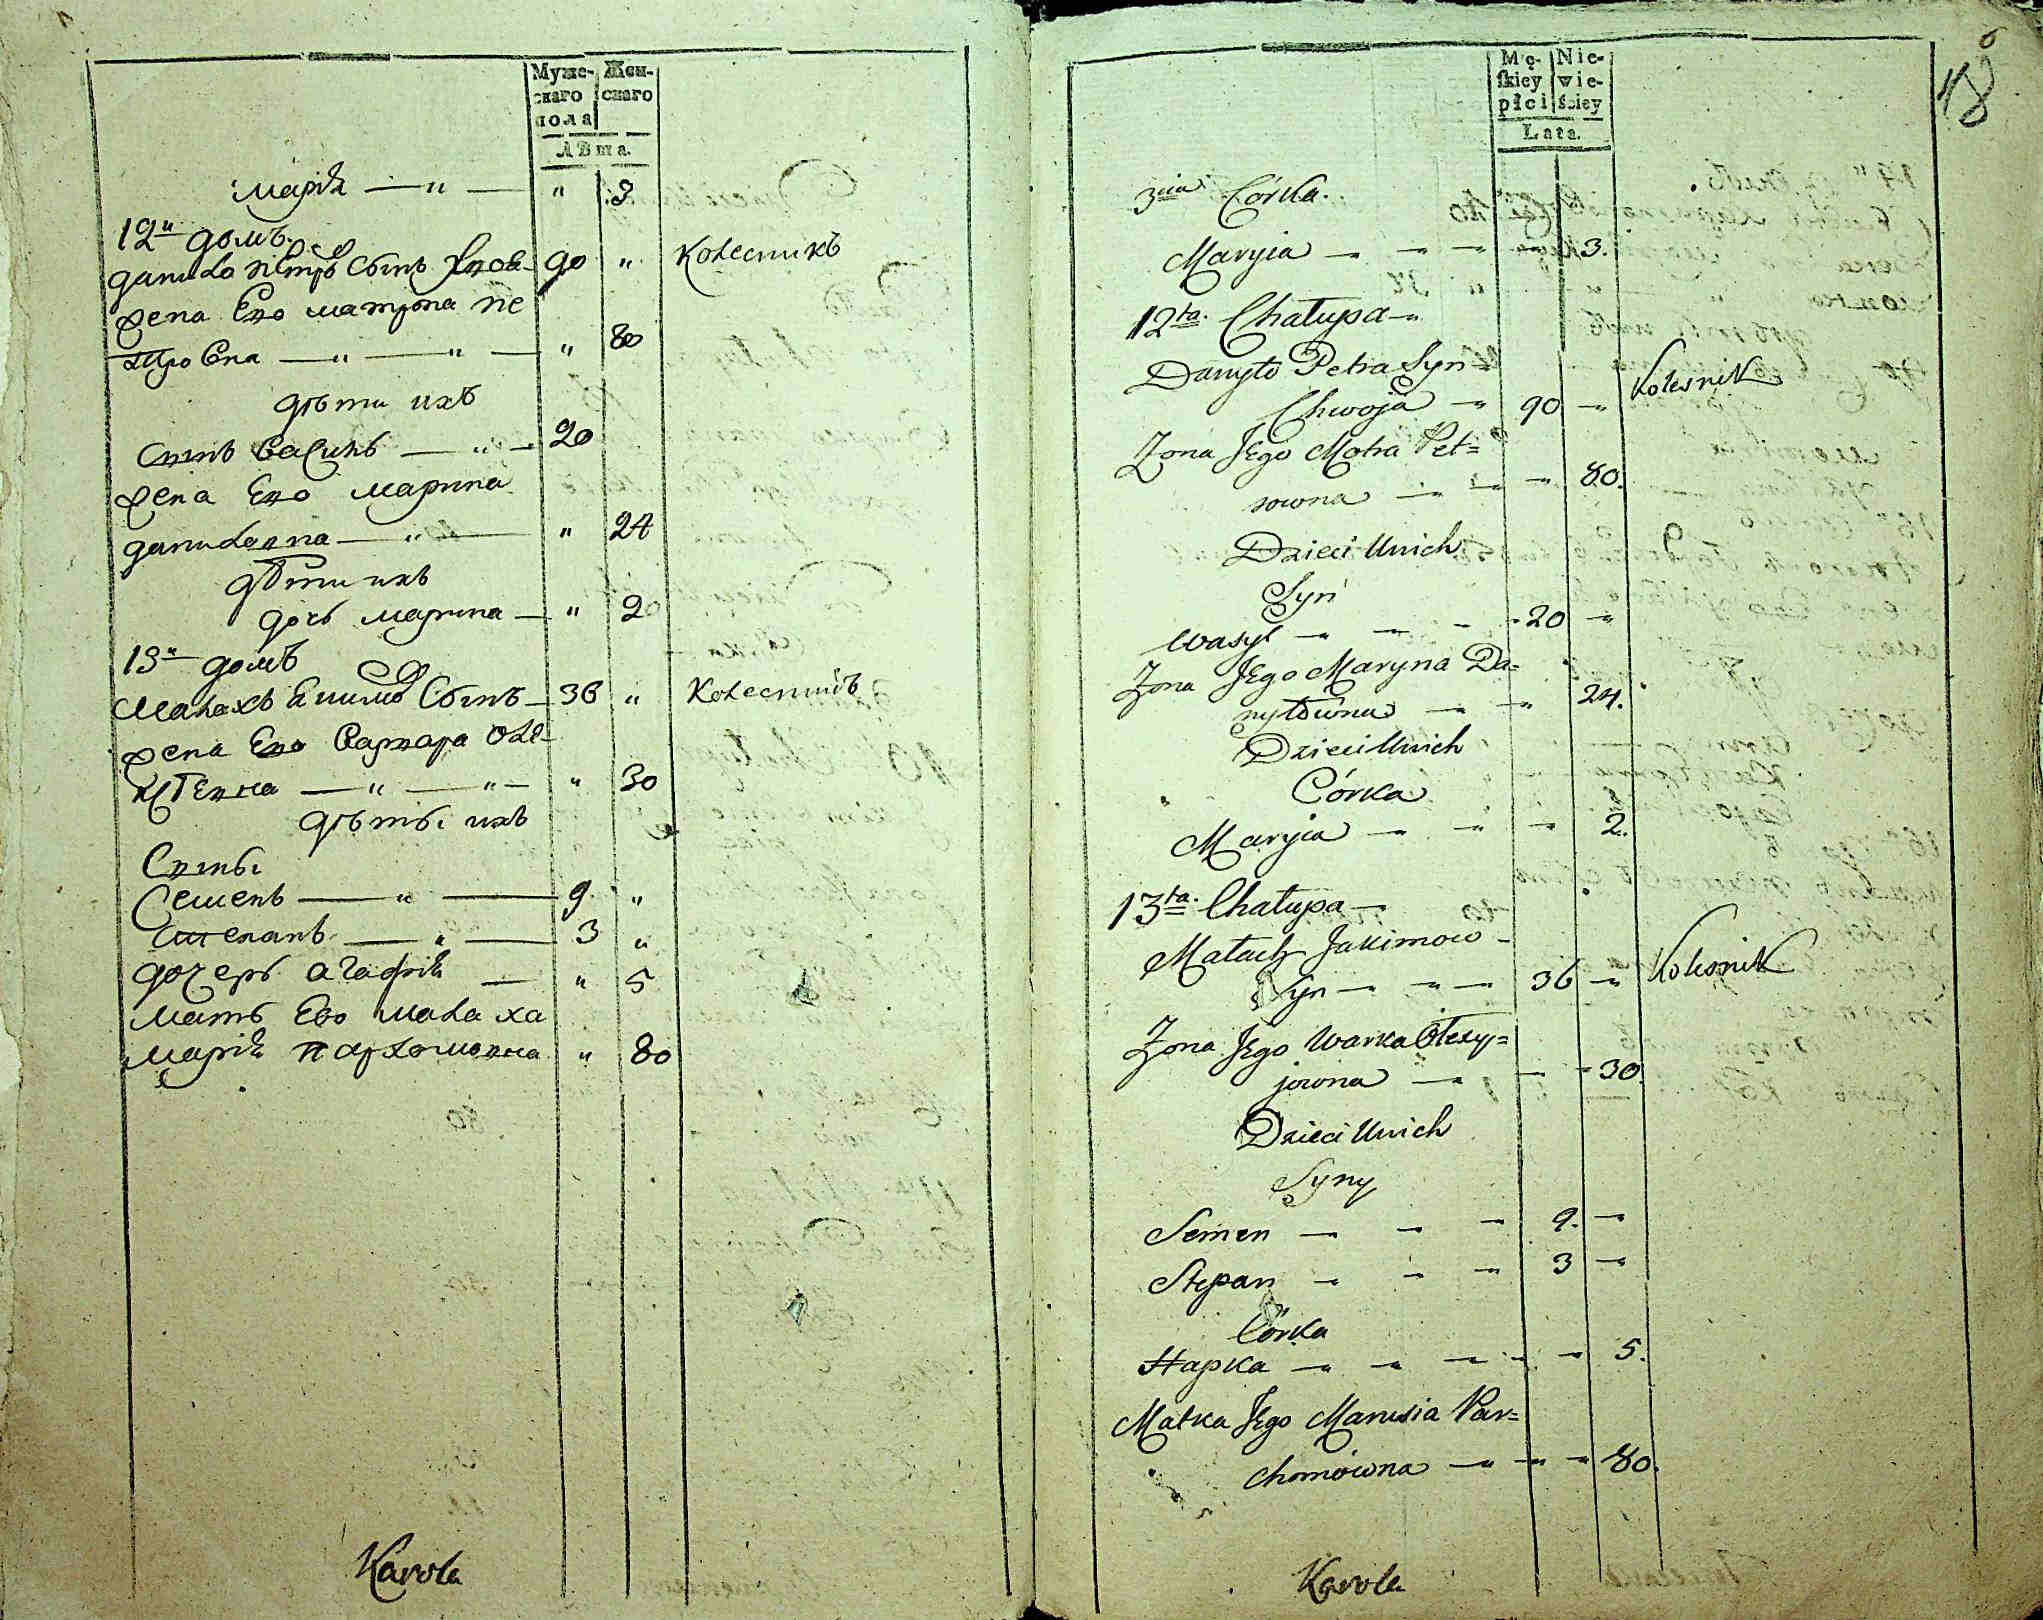 Муже-
скаго
пола
Жен-
скаго
Лѣта.
Марія — " — " 3
12й домъ.
Данило Петръ Сынъ 90 " Колесникъ
Жена Его Матрона Пе
тровна — " — " — " 80
дѣти ихъ
Сынъ Василь — " — 20
Жена Его Марина
Даниловна — " — " 24
дѣти ихъ
дочь Марина — " 2
13й домъ
Малахъ Якимов Сынъ — 36 " Колесникъ
Жена Его Варвара Оле-
ксѣевна — " — " — " 30
дѣты ихъ
Сыны
Семенъ — " — 9 "
Степанъ — " — 3 "
дочерь Агафія — " 5
Мать Ево Малаха
Марія Пархомовна " 80
Karola
18
Mę-
skiey
płci
Nie-
wie-
ściey
Lata.
3cia Córka.
Maryia — — — — 3.
12ta. Chałupa —
Danyło Petra Syn=
Chwoja — 90 — Kolesnik
Zona Jego Motra Pet=
rowna — — — 80.
Dzieci Unich
Syn
Wasyl — — — 20 —
Zona Jego Maryna Da=
nyłowna — — 24.
Dzieci Unich
Córka
Maryia — — — 2.
13ta. Chałupa —
Małach Jakimow-
Syn — — — 36 — Kolesnik
Zona Jego Warka Olexy=
jowna — — — 30.
Dzieci Unich
Syny
Semen — — — 9. —
Stepan — — — 3 —
Córka
Hapka — — — — — 5.
Matka Jego Marusia Par=
chomowna — — — 80.
Karola